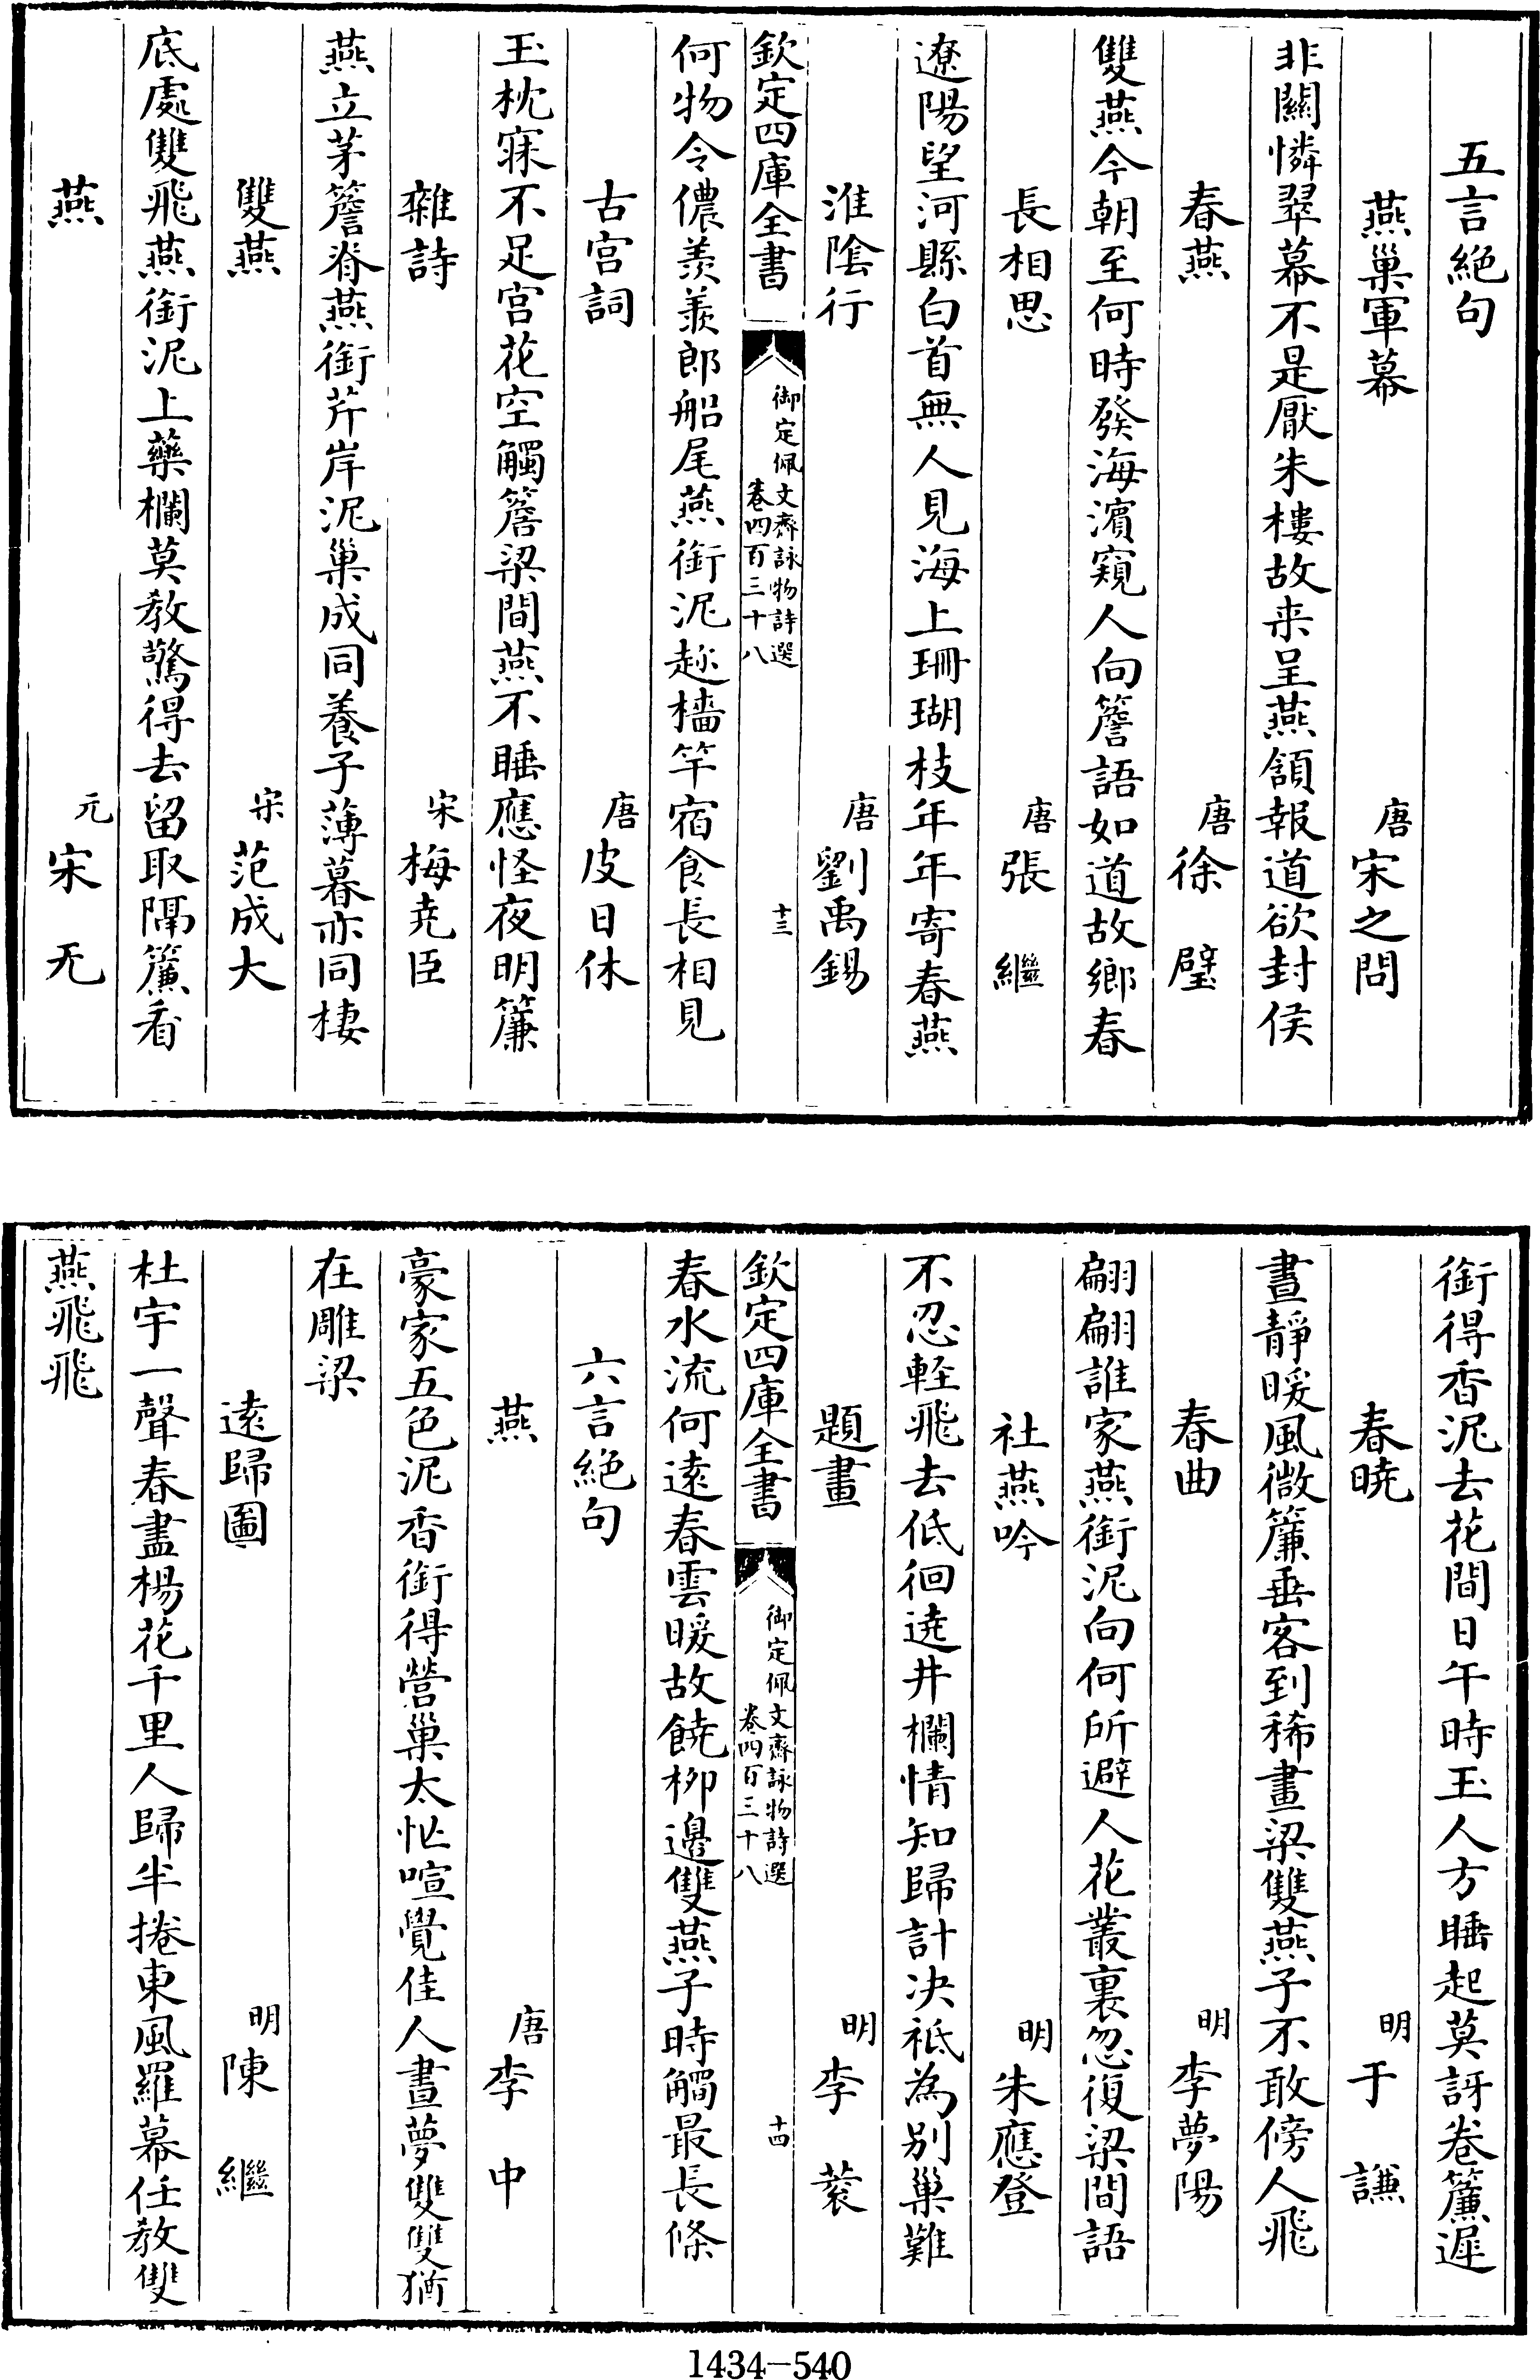 五言絕句
燕巢軍幕　唐宋之問
非關憐翠幕不是厭朱樓故来呈燕頷報道欲封侯
春燕　唐徐璧
雙燕今朝至何時發海濱窺人向簷語如道故鄉春
長相思　唐張繼
遼陽望河縣白首無人見海上珊瑚枝年年寄春燕
淮隂行　唐劉禹錫
欽定四庫全書　御定佩文齋詠物詩選　卷四百三十八　十三
何物令儂羨羨郎船尾燕銜泥趂檣竿宿食長相見
古宮詞　唐皮日休
玉枕寐不足宮花空觸簷梁間燕不睡應怪夜明簾
雜詩　宋梅堯臣
燕立茅簷脊燕銜芹岸泥巢成同養子薄暮亦同棲
雙燕　宋范成大
底處雙飛燕銜泥上藥欄莫教驚得去留取隔簾看
燕　元宋无
銜得香泥去花間日午時玉人方睡起莫訝卷簾遲
春曉　明于謙
晝靜暖風微簾垂客到稀畫梁雙燕子不敢傍人飛
春曲　明李夢陽
翩翩誰家燕銜泥向何所避人花叢裏忽復梁間語
社燕吟　明朱應登
不忍輕飛去低徊遶井欄情知歸計决祇為別巢難
題畫　明李蓘
欽定四庫全書　御定佩文齋詠物詩選　卷四百三十八　十四
春水流何遠春雲暖故饒栁邊雙燕子時觸最長條
六言絕句
燕　唐李中
豪家五色泥香銜得營巢太忙喧覺佳人晝夢雙雙猶
在雕梁
遠歸圖　明陳繼
杜宇一聲春盡楊花千里人歸半捲東風羅幕任教雙
燕飛飛
1434-540